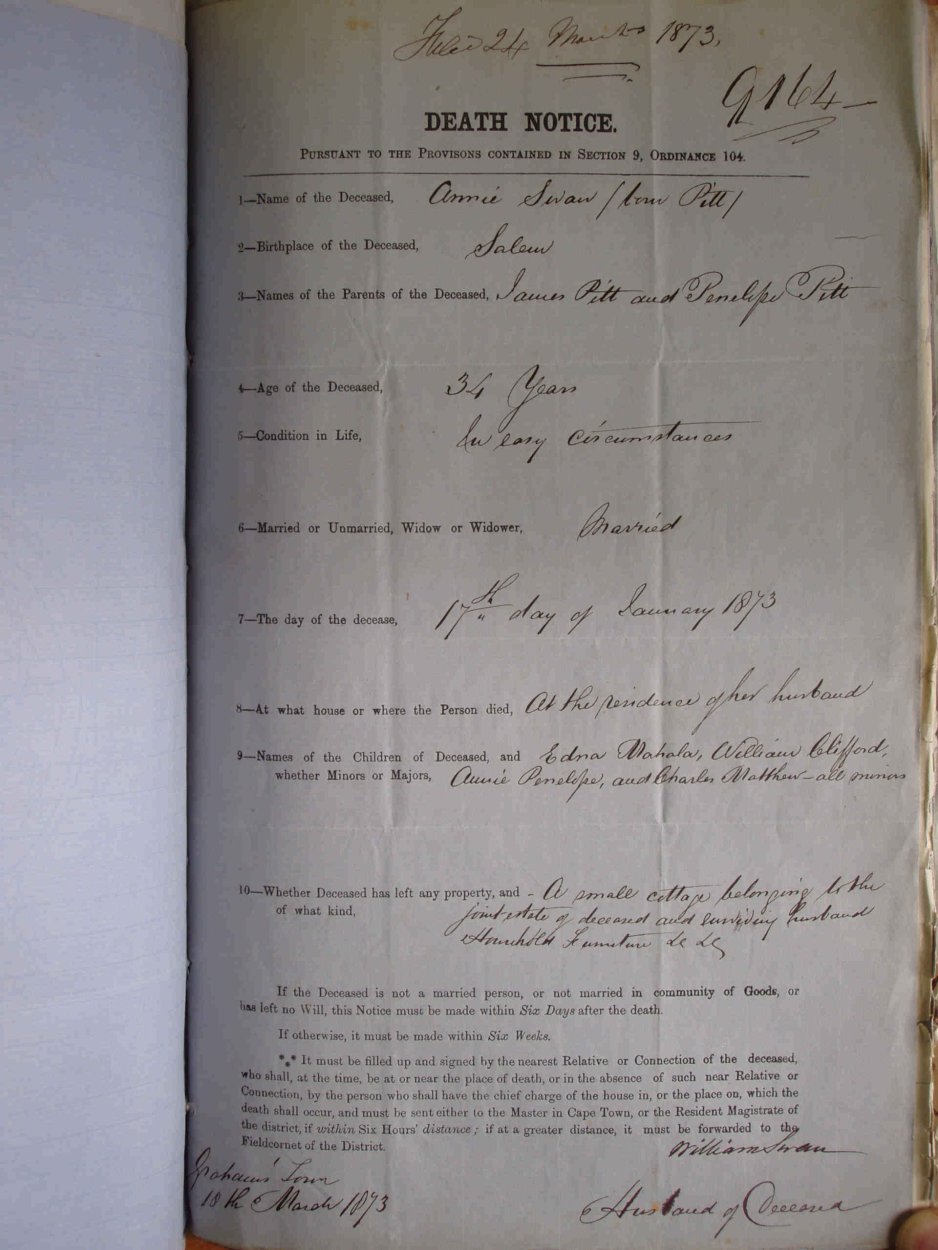 Filed 24 March 1873.
9164
DEATH NOTICE.
PURSUANT TO THE PROVISONS CONTAINED IN SECTION 9, ORDINANCE 104.
1—Name of the Deceased, Annie Swan / born Pitt /
2—Birthplace of the Deceased, Salem
3—Names of the Parents of the Deceased, James Pitt and Penelope Pitt
4—Age of the Deceased, 34 Years
5—Condition in Life, In easy circumstances
6—Married or Unmarried, Widow or Widower, Married
7—The day of the decease, 17th day of January 1873
8—At what house or where the Person died, At the residence of her husband
9—Names of the Children of Deceased, and Edna Mahala, William Clifford,
whether Minors or Majors, Annie Penelope, and Charles Matthew – all minors
10—Whether Deceased has left any property, and - A small cottage belonging to the
of what kind, joint estate of deceased and surviving husband
Household Furniture &c &c
If the Deceased is not a married person, or not married in community of Goods, or
has left no Will, this Notice must be made within Six Days after the death.
If otherwise, it must be made within Six Weeks.
*⁎* It must be filled up and signed by the nearest Relative or Connection of the deceased,
who shall, at the time, be at or near the place of death, or in the absence of such near Relative or
Connection, by the person who shall have the chief charge of the house in, or the place on, which the
death shall occur, and must be sent either to the Master in Cape Town, or the Resident Magistrate of
the district, if within Six Hours' distance; if at a greater distance, it must be forwarded to the
Fieldcornet of the District.
William Swan
Graham's Town
18th March 1873
Husband of Deceased